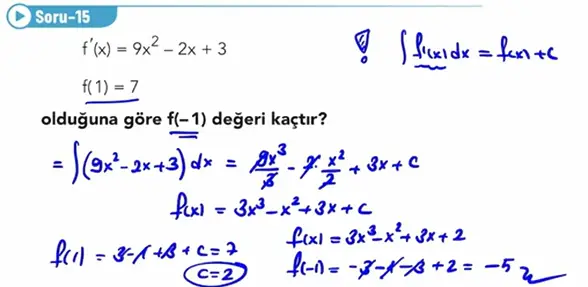 Soru-15
f'(x) = 9x² – 2x + 3
! ∫ f'(x) dx = f(x) + c
f(1) = 7
olduğuna göre f(–1) değeri kaçtır?
= ∫(9x² - 2x + 3) dx = 9x³/3 - 2·x²/2 + 3x + c
f(x) = 3x³ - x² + 3x + c
f(1) = 3 - 1 + 3 + c = 7
c = 2
f(x) = 3x³ - x² + 3x + 2
f(-1) = -3 - 1 - 3 + 2 = -5